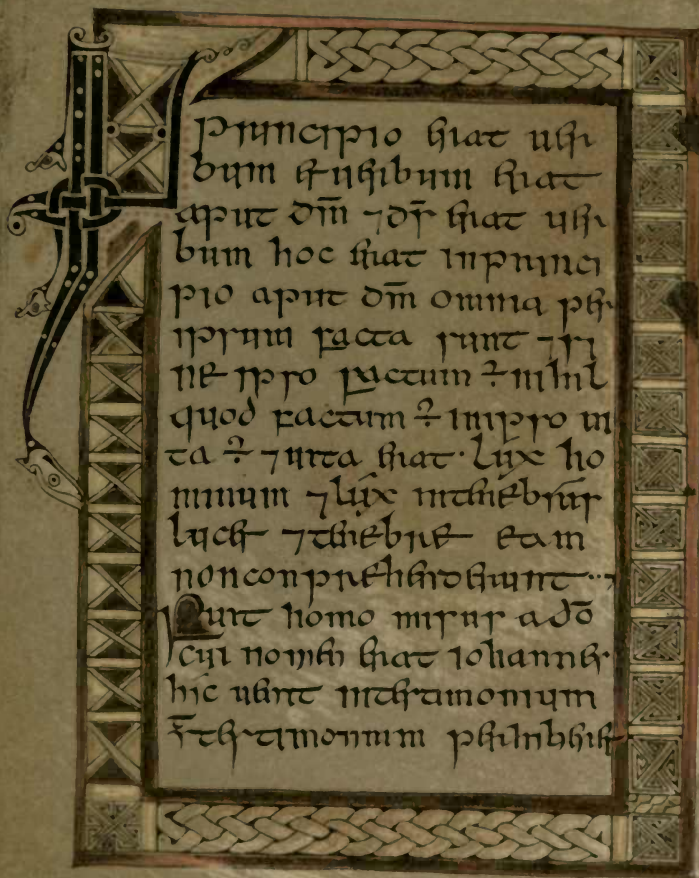 In principio erat uer
bum et uerbum erat
aput dm̄ ⁊ ds̄ erat uer
bum hoc erat inprinci
pio aput dm̄ omnia per
ipsum facta sunt ⁊ si
ne ipso factum ÷ nihil
quod factum ÷ inipso ui
ta ÷ ⁊ uita erat · lux ho
minum ⁊ lux intenebris
lucet ⁊ tenebre eam
nonconprehenderunt
Fuit homo misus a dō
cui nomen erat iohannes
hic uenit intestimonium
testimonium perhiberet